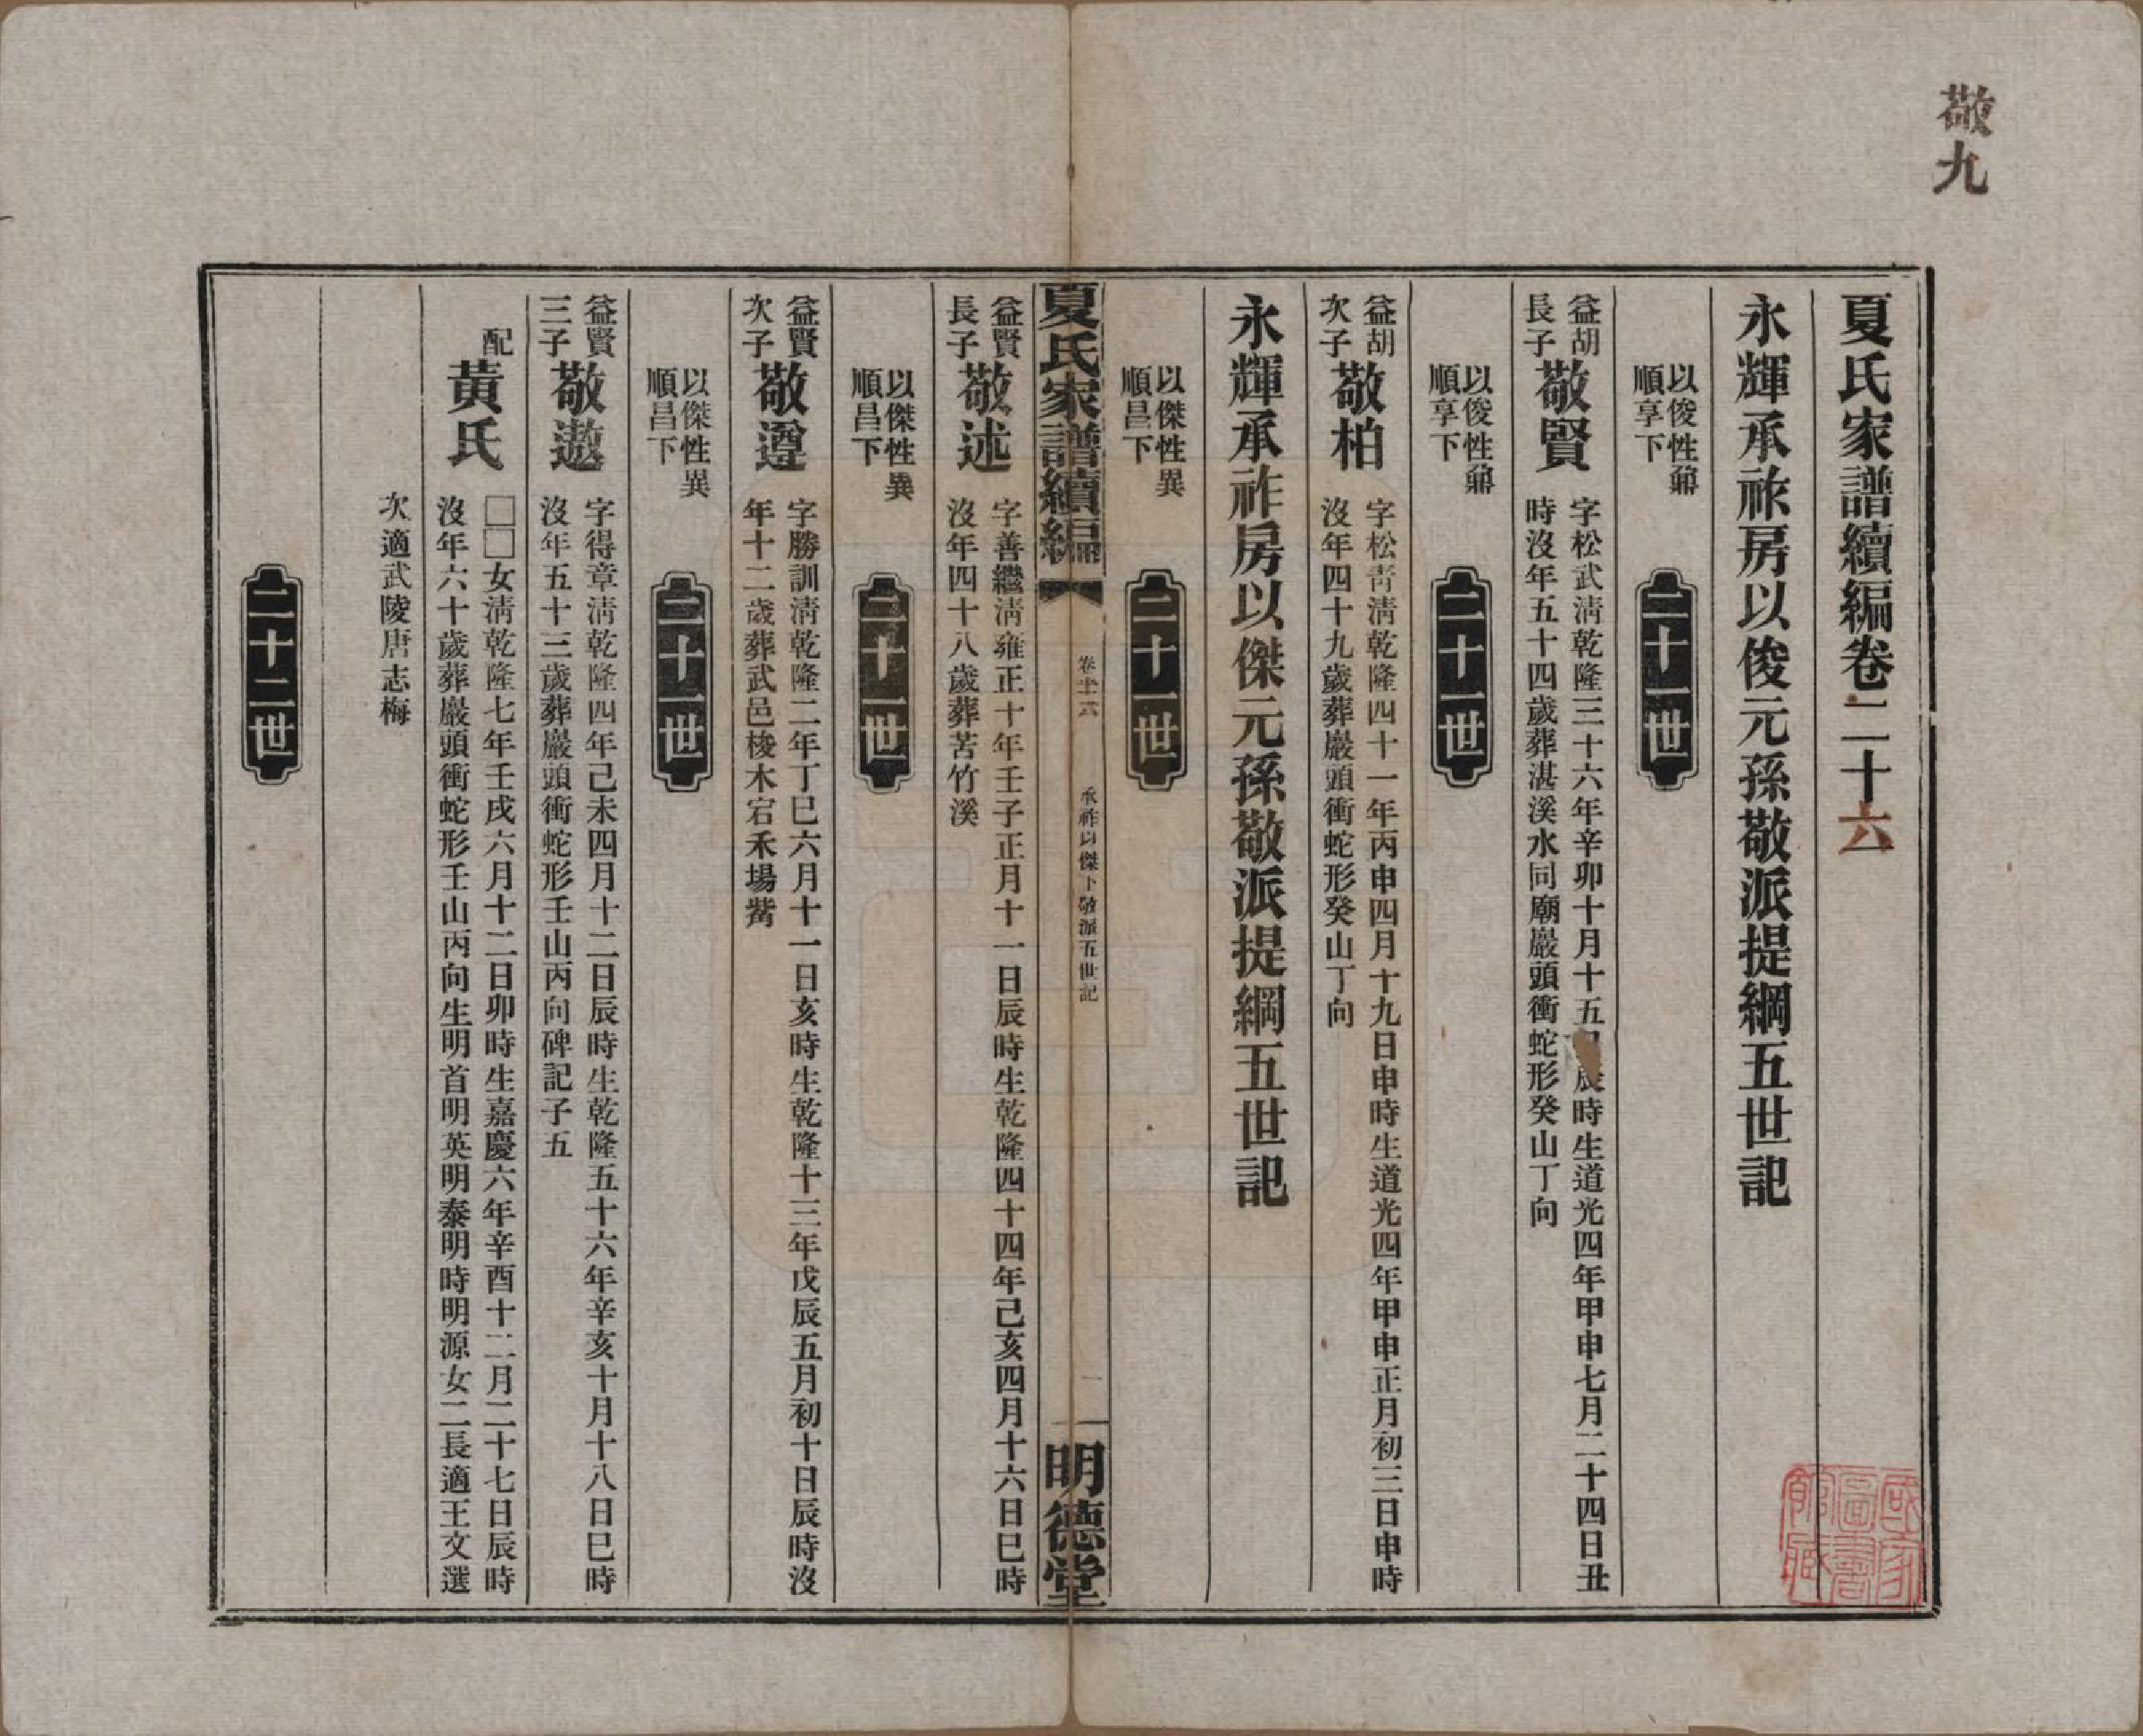 敬九
夏氏家譜續編卷二十六
永輝承祚房以俊元孫敬派提綱五世記
以俊性鼐
順享下
二十一世
益胡
長子
敬賢
字松武淸乾隆三十六年辛卯十月十五 辰時生道光四年甲申七月二十四日丑
時沒年五十四歲葬湛溪水同廟巖頭衝蛇形癸山丁向
以俊性鼐
順享下
二十一世
益胡
次子
敬柏
字松靑淸乾隆四十一年丙申四月十九日申時生道光四年甲申正月初三日申時
沒年四十九歲葬巖頭衝蛇形癸山丁向
永輝承祚房以傑元孫敬派提綱五世記
以傑性異
順昌下
二十一世
夏氏家譜續編
卷廿六
承祚以傑下敬派五世記
一
明德堂
益賢
長子
敬述
字善繼淸雍正十年壬子正月十一日辰時生乾隆四十四年己亥四月十六日巳時
沒年四十八歲葬苦竹溪
以傑性異
順昌下
二十一世
益賢
次子
敬遵
字勝訓淸乾隆二年丁巳六月十一日亥時生乾隆十三年戊辰五月初十日辰時沒
年十二歲葬武邑梭木宕禾場觜
以傑性異
順昌下
二十一世
益賢
三子
敬遨
字得章淸乾隆四年己未四月十二日辰時生乾隆五十六年辛亥十月十八日巳時
沒年五十三歲葬巖頭衝蛇形壬山丙向碑記子五
配
黃氏
□□女淸乾隆七年壬戌六月十二日卯時生嘉慶六年辛酉十二月二十七日辰時
沒年六十歲葬巖頭衝蛇形壬山丙向生明首明英明泰明時明源女二長適王文選
次適武陵唐志梅
二十二世
國家
圖書
館藏